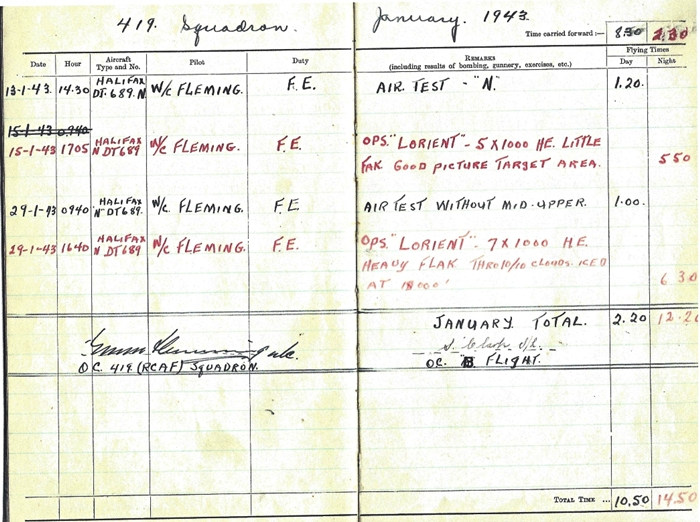 419. Squadron.
January. 1943.
Time carried forward :— 8.30 2.30
Date Hour Aircraft Type and No. Pilot Duty REMARKS (including results of bombing, gunnery, exercises, etc.) Flying Times Day Night
13-1-43. 14.30 HALIFAX DT-689.N. W/C FLEMING. F.E. AIR TEST - "N". 1.20.
15-1-43 0940
15-1-43 1705 HALIFAX N DT689 W/C FLEMING. F.E. OPS. "LORIENT" - 5 X 1000 HE. LITTLE
FAK GOOD PICTURE TARGET AREA. 5 50
29-1-43 0940 HALIFAX "N" DT689. W/C FLEMING. F.E AIR TEST WITHOUT MID-UPPER. 1.00.
29-1-43 1640 HALIFAX N DT689 W/C FLEMING. F.E. OPS. "LORIENT" - 7 X 1000 H.E.
HEAVY FLAK THRO 10/10 CLOUDS. ICED
AT 18000' 6 30
JANUARY TOTAL. 2.20 12.20
Fleming w/c.
O C 419 (RCAF) SQUADRON.
OC. "B" FLIGHT.
TOTAL TIME ... 10.50 14.50